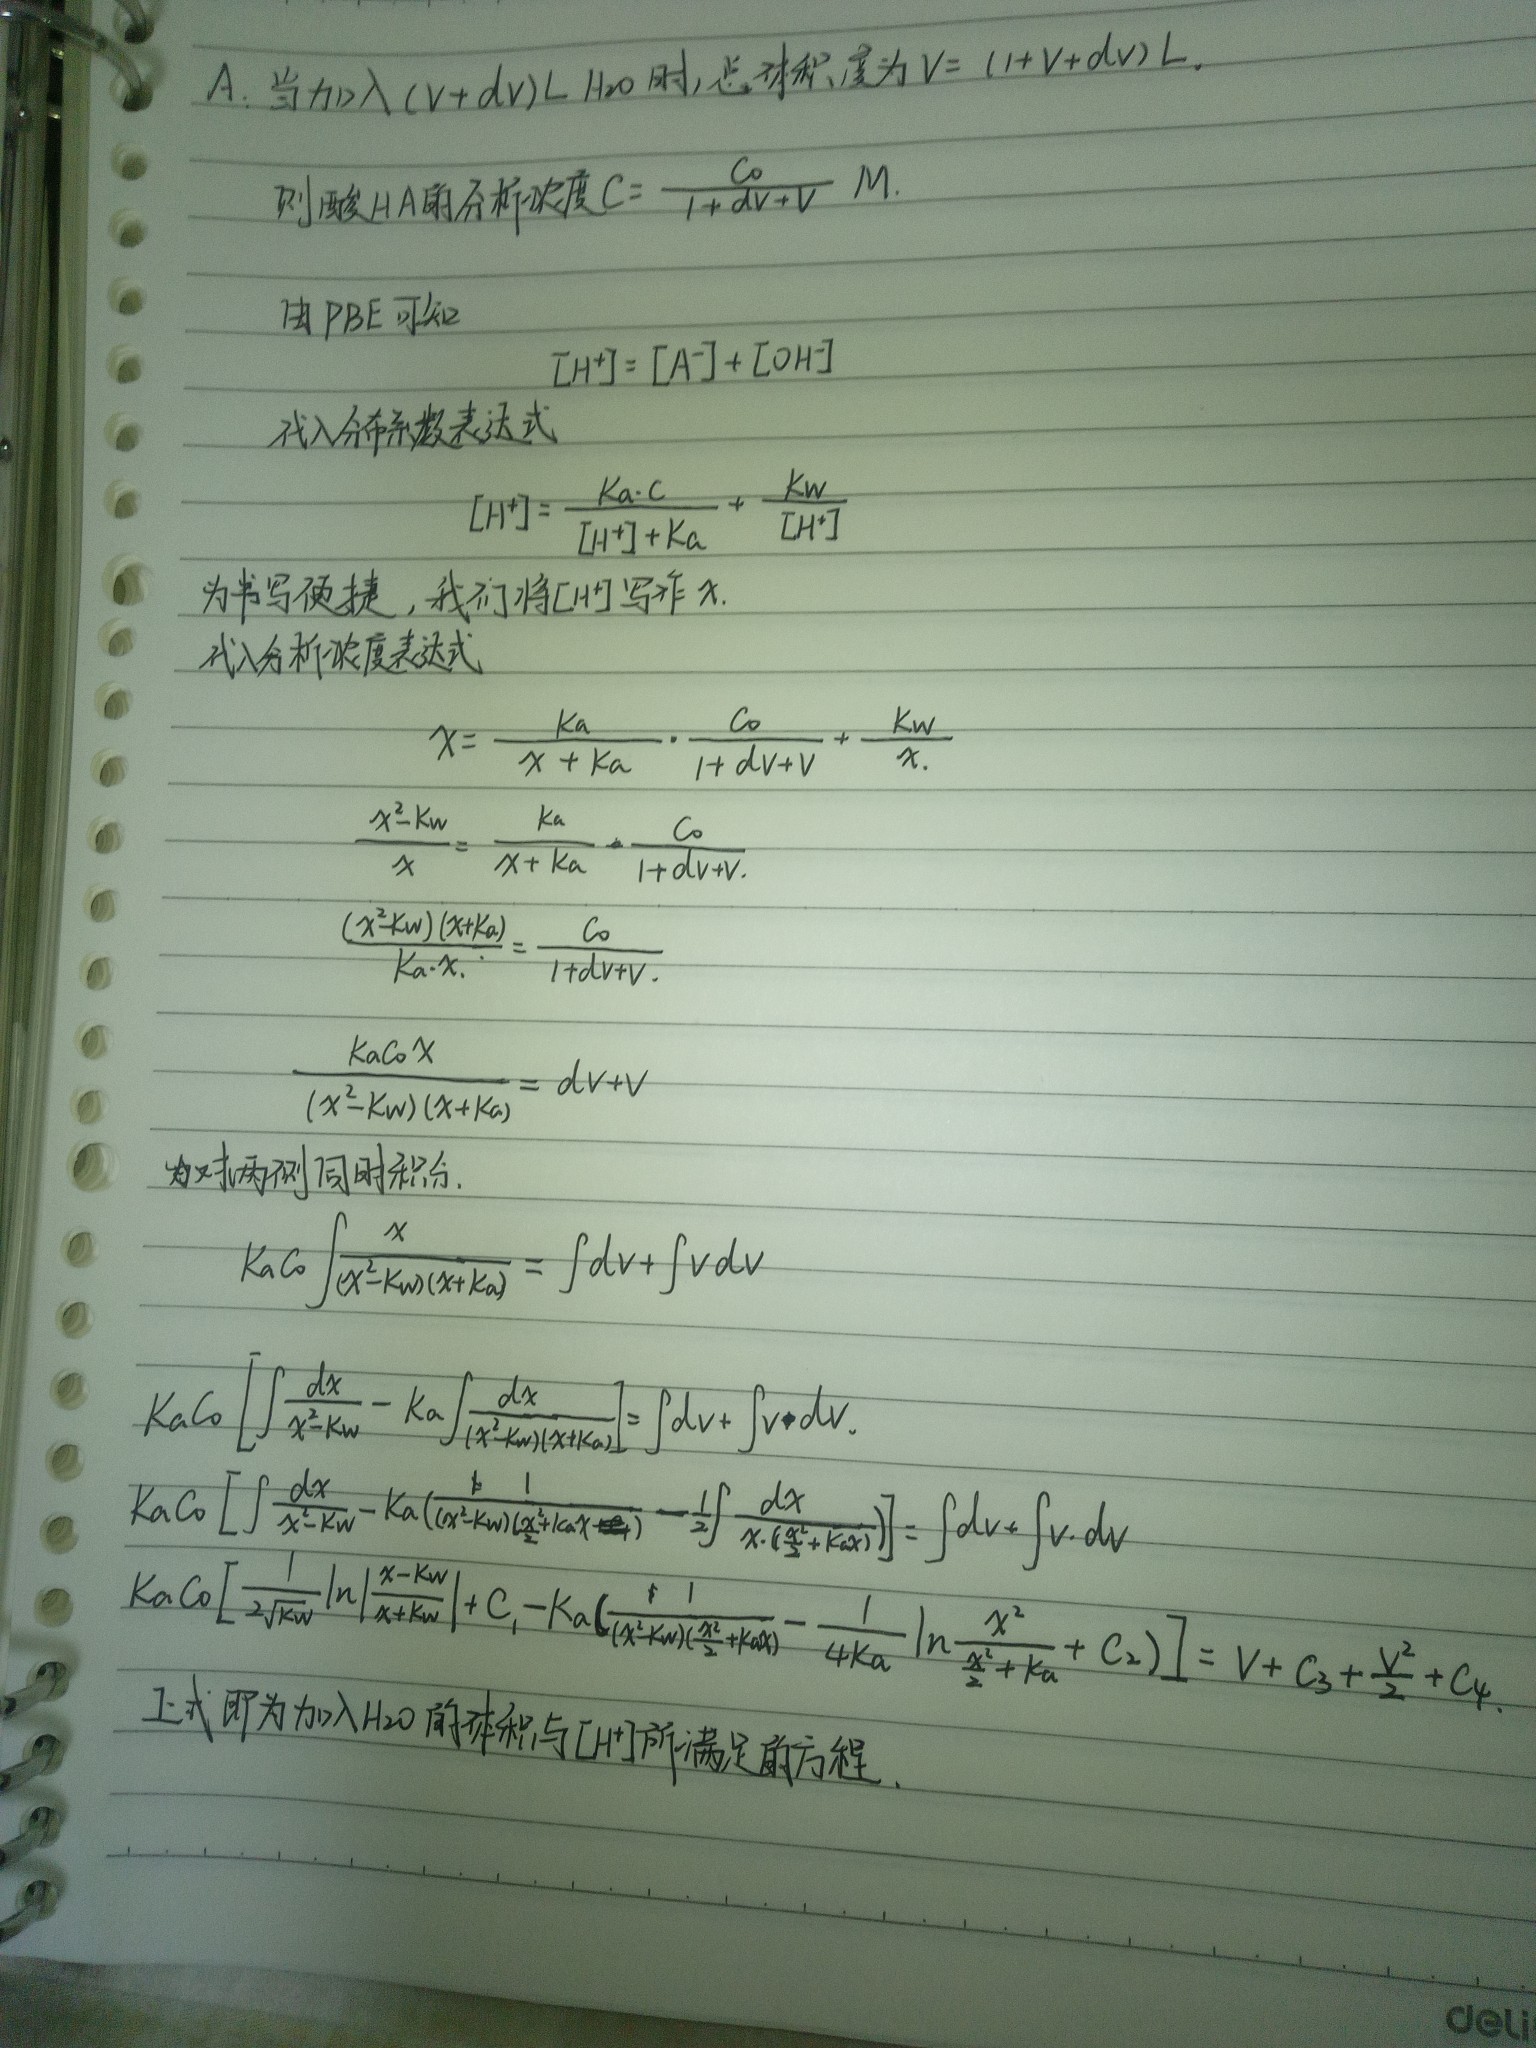 A. 当加入(V+dV)L H₂O时,总体积度为V=(1+V+dV)L.
则酸HA的分析浓度C= C₀/(1+dV+V) M.
由PBE可知
[H⁺]=[A⁻]+[OH⁻]
代入分布系数表达式
[H⁺]= Ka·C/([H⁺]+Ka) + Kw/[H⁺]
为书写便捷,我们将[H⁺]写作x.
代入分析浓度表达式
x= Ka/(x+Ka) · C₀/(1+dV+V) + Kw/x.
(x²-Kw)/x = Ka/(x+Ka) · C₀/(1+dV+V).
(x²-Kw)(x+Ka)/(Ka·x.) = C₀/(1+dV+V).
KaC₀x/((x²-Kw)(x+Ka)) = dV+V
对两侧同时积分.
KaC₀ ∫ x/((x²-Kw)(x+Ka)) = ∫dV+∫VdV
KaC₀ [∫ dx/(x²-Kw) - Ka∫ dx/((x²-Kw)(x+Ka))] = ∫dV+∫V·dV.
KaC₀ [∫ dx/(x²-Kw) - Ka( 1/((x²-Kw)(x²/2+Kax)) - 1/2 ∫ dx/(x·(x²/2+Kax)))] = ∫dV+∫V·dV
KaC₀ [1/(2√Kw) ln|(x-Kw)/(x+Kw)| + C₁ - Ka( 1/((x²-Kw)(x²/2+Kax)) - 1/(4Ka) ln x²/(x²/2+Ka) + C₂)] = V+C₃+V²/2+C₄.
上式即为加入H₂O的体积与[H⁺]所满足的方程.